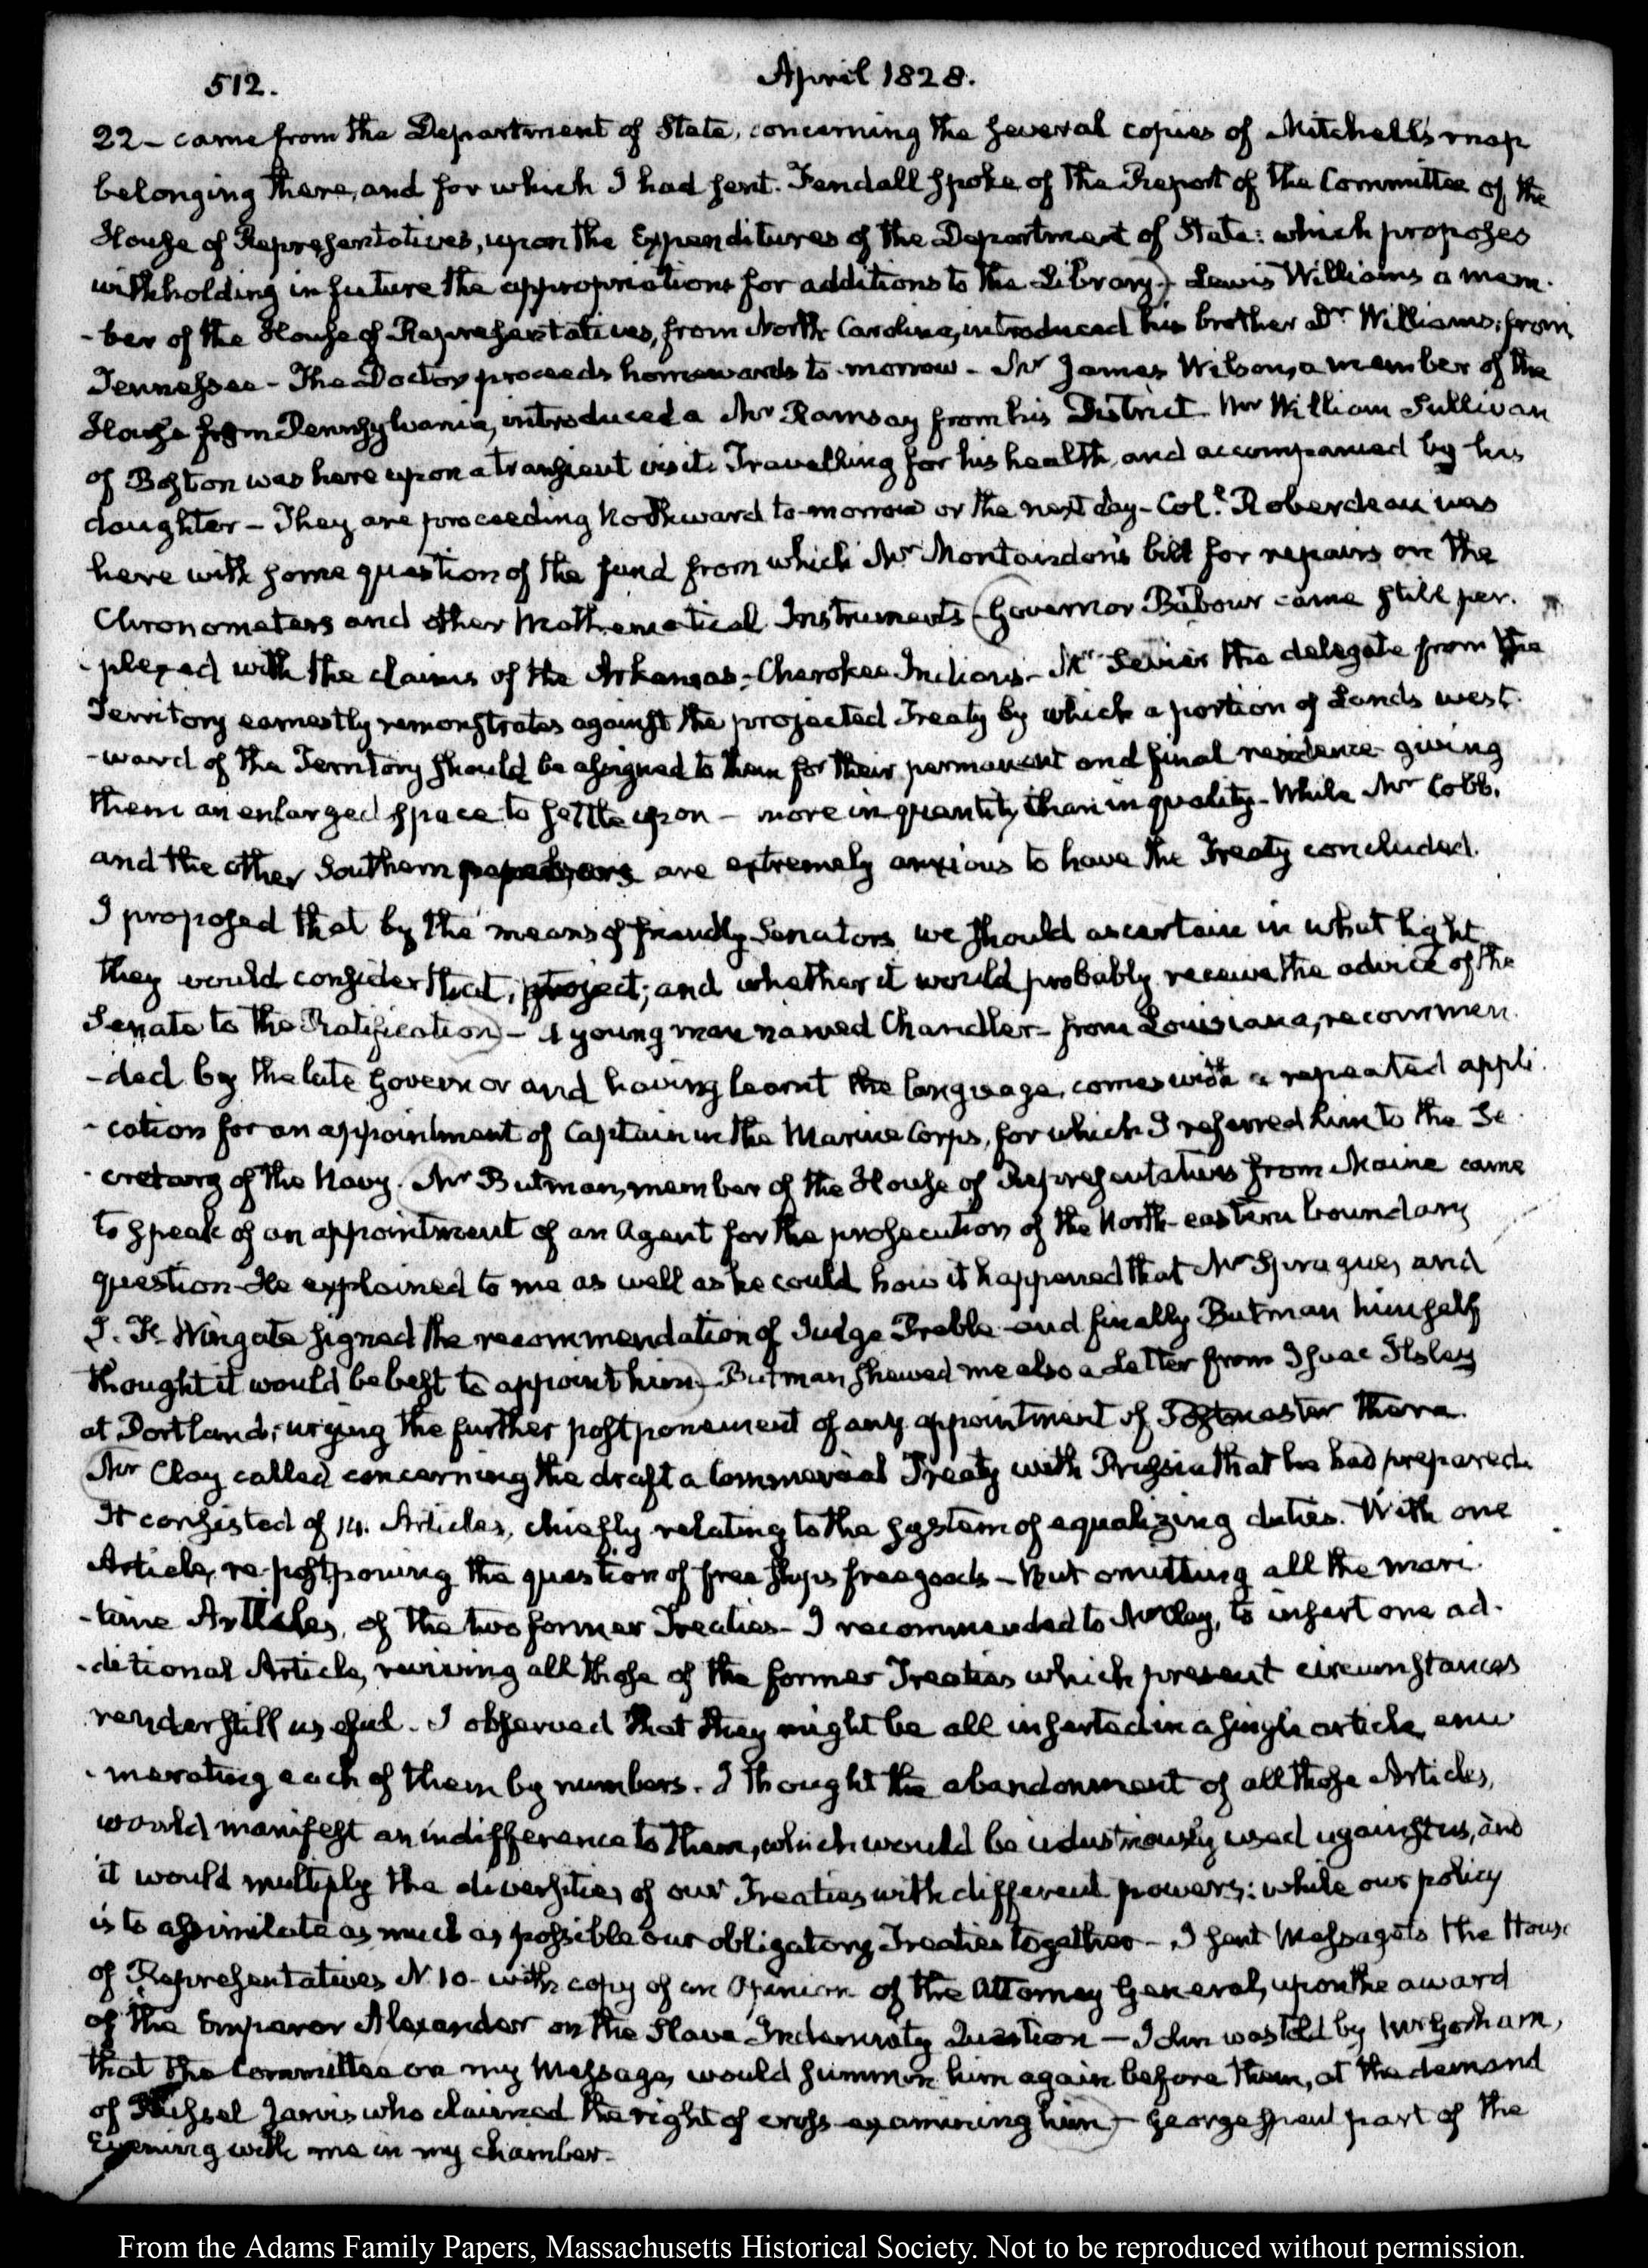 512.
April 1828.
22 - came from the Department of State, concerning the several copies of Mitchell's map
belonging there, and for which I had sent. Fendall spoke of the Report of the Committee of the
House of Representatives, upon the Expenditures of the Department of State: which proposes
withholding in future the appropriations for additions to the Library) - Lewis Williams a mem-
-ber of the House of Representatives, from North Carolina, introduced his brother Dr Williams, from
Tennessee - The Doctor proceeds homewards to-morrow - Mr James Wilson, a member of the
House from Pennsylvania, introduced a Mr Ramsay from his District. Mr William Sullivan
of Boston was here upon a transient visit. Travelling for his health, and accompanied by his
daughter - They are proceeding Northward to-morrow or the next day - Coll. Roberdeau was
here with some question of the fund from which Mr Montandon's bill for repairs on the
Chronometers and other Mathematical Instruments (Governor Barbour came still per-
-plexed with the claims of the Arkansas-Cherokee Indians - Mr Sevier the delegate from the
Territory earnestly remonstrates against the projected Treaty by which a portion of Lands west-
-ward of the Territory should be assigned to them for their permanent and final residence giving
them an enlarged space to settle upon - more in quantity than in quality - While Mr Cobb,
and the other Southern are extremely anxious to have the Treaty concluded.
I proposed that by the means of friendly Senators we should ascertain in what light
they would consider that project; and whether it would probably receive the advice of the
Senate to the Ratification) - A young man named Chandler - from Louisiana, recommen-
-ded by the late Governor and having learnt the language, comes with a repeated appli-
-cation for an appointment of Captain in the Marine Corps, for which I referred him to the Se-
-cretary of the Navy. (Mr Butman, member of the House of Representatives from Maine came
to speak of an appointment of an Agent for the prosecution of the North-eastern boundary
question - He explained to me as well as he could how it happened that Mr Sprague, and
J. F. Wingate signed the recommendation of Judge Preble - and finally Butman himself
thought it would be best to appoint him) - Butman shewed me also a Letter from Isaac Ilsley
at Portland; urging the further postponement of any appointment of Postmaster there.
(Mr Clay called concerning the draft a Commercial Treaty with Prussia that he had prepared.
It consisted of 14. Articles, chiefly relating to the system of equalizing duties. With one
Article, re-postponing the question of free ships free goods - But omitting all the mari-
-time Articles, of the two former Treaties - I recommended to Mr Clay, to insert one ad-
-ditional Article, reviving all those of the former Treaties which present circumstances
render still useful. I observed that they might be all inserted in a single article, enu
-merating each of them by numbers. I thought the abandonment of all those Articles,
would manifest an indifference to them, which would be idustriously used against us, and
it would multiply the diversities of our Treaties with different powers: while our policy
is to assimilate as much as possible our obligatory Treaties together - I sent Message to the House
of Representatives N. 10 - with copy of an Opinion of the Attorney General, upon the award
of the Emperor Alexander on the Slave Indemnity Question - John was told by Mr Gorham,
that the Committee on my Message, would summon him again before them, at the demand
of Russel Jarvis who claimed the right of cross-examining him) - George spent part of the
Evening with me in my chamber.
From the Adams Family Papers, Massachusetts Historical Society. Not to be reproduced without permission.